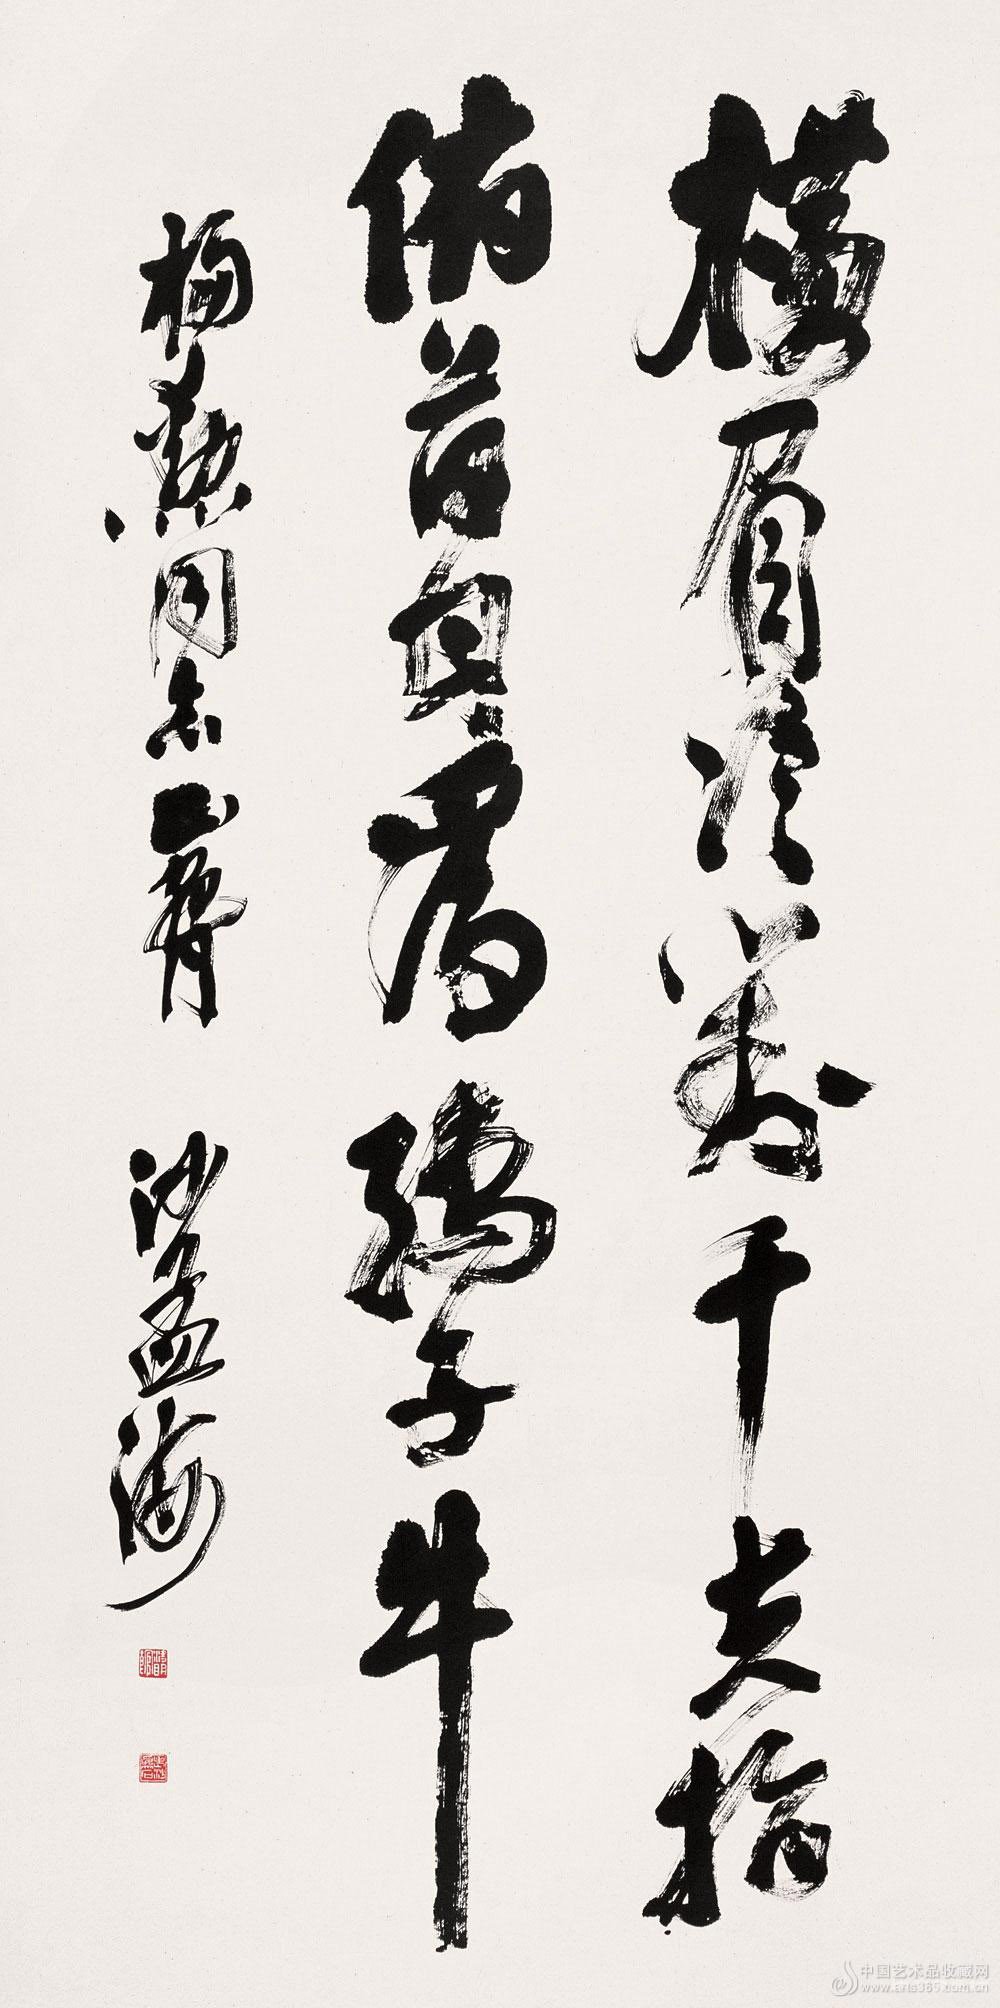 橫眉冷對千夫指
俯首甘為孺子牛
同志正腕
沙孟海
中国艺术品收藏网
www.arts365.com.cn